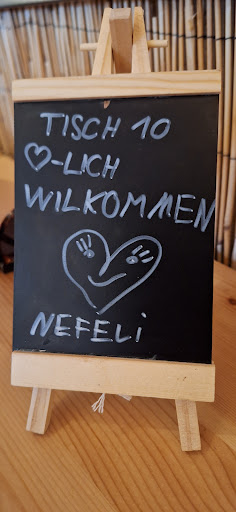 TISCH 10
♡-LICH
WILKOMMEN
NEFELi